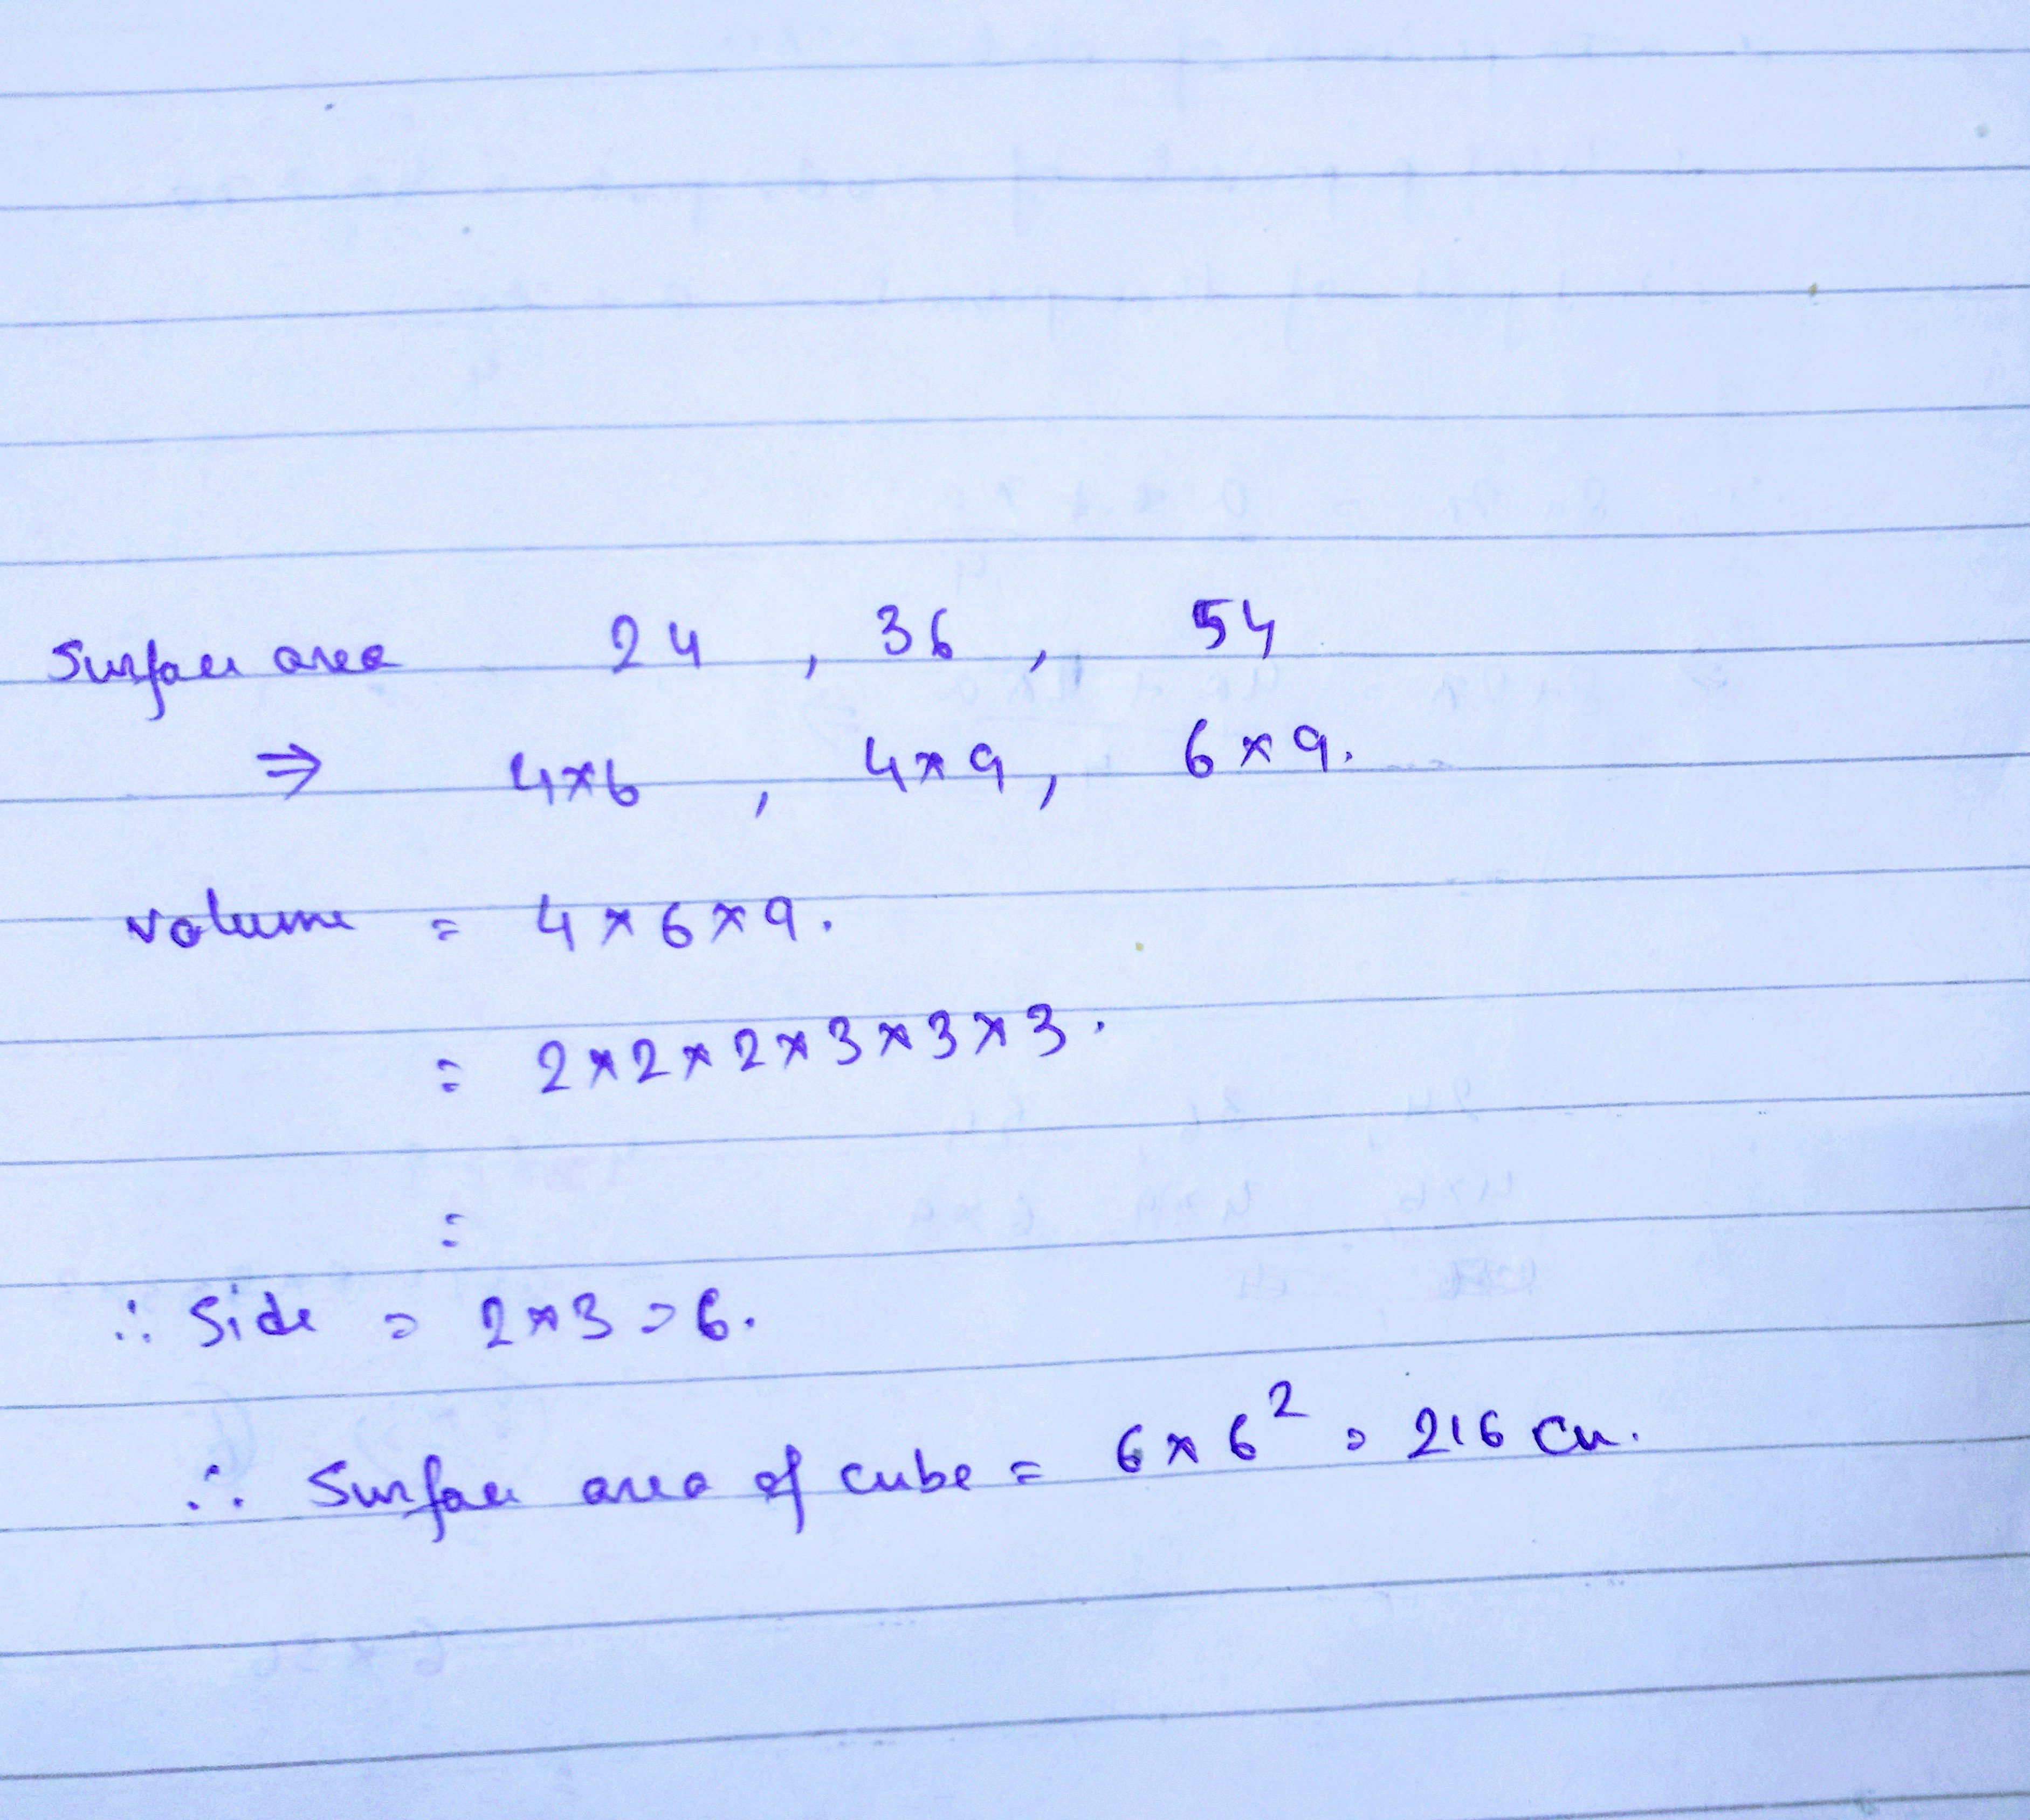 Surface area 24 , 36 , 54
⇒ 4×6 , 4×9 , 6×9.
volume = 4×6×9.
= 2×2×2×3×3×3.
=
∴ Side = 2×3 = 6.
∴ Surface area of cube = 6×6² = 216 cm.